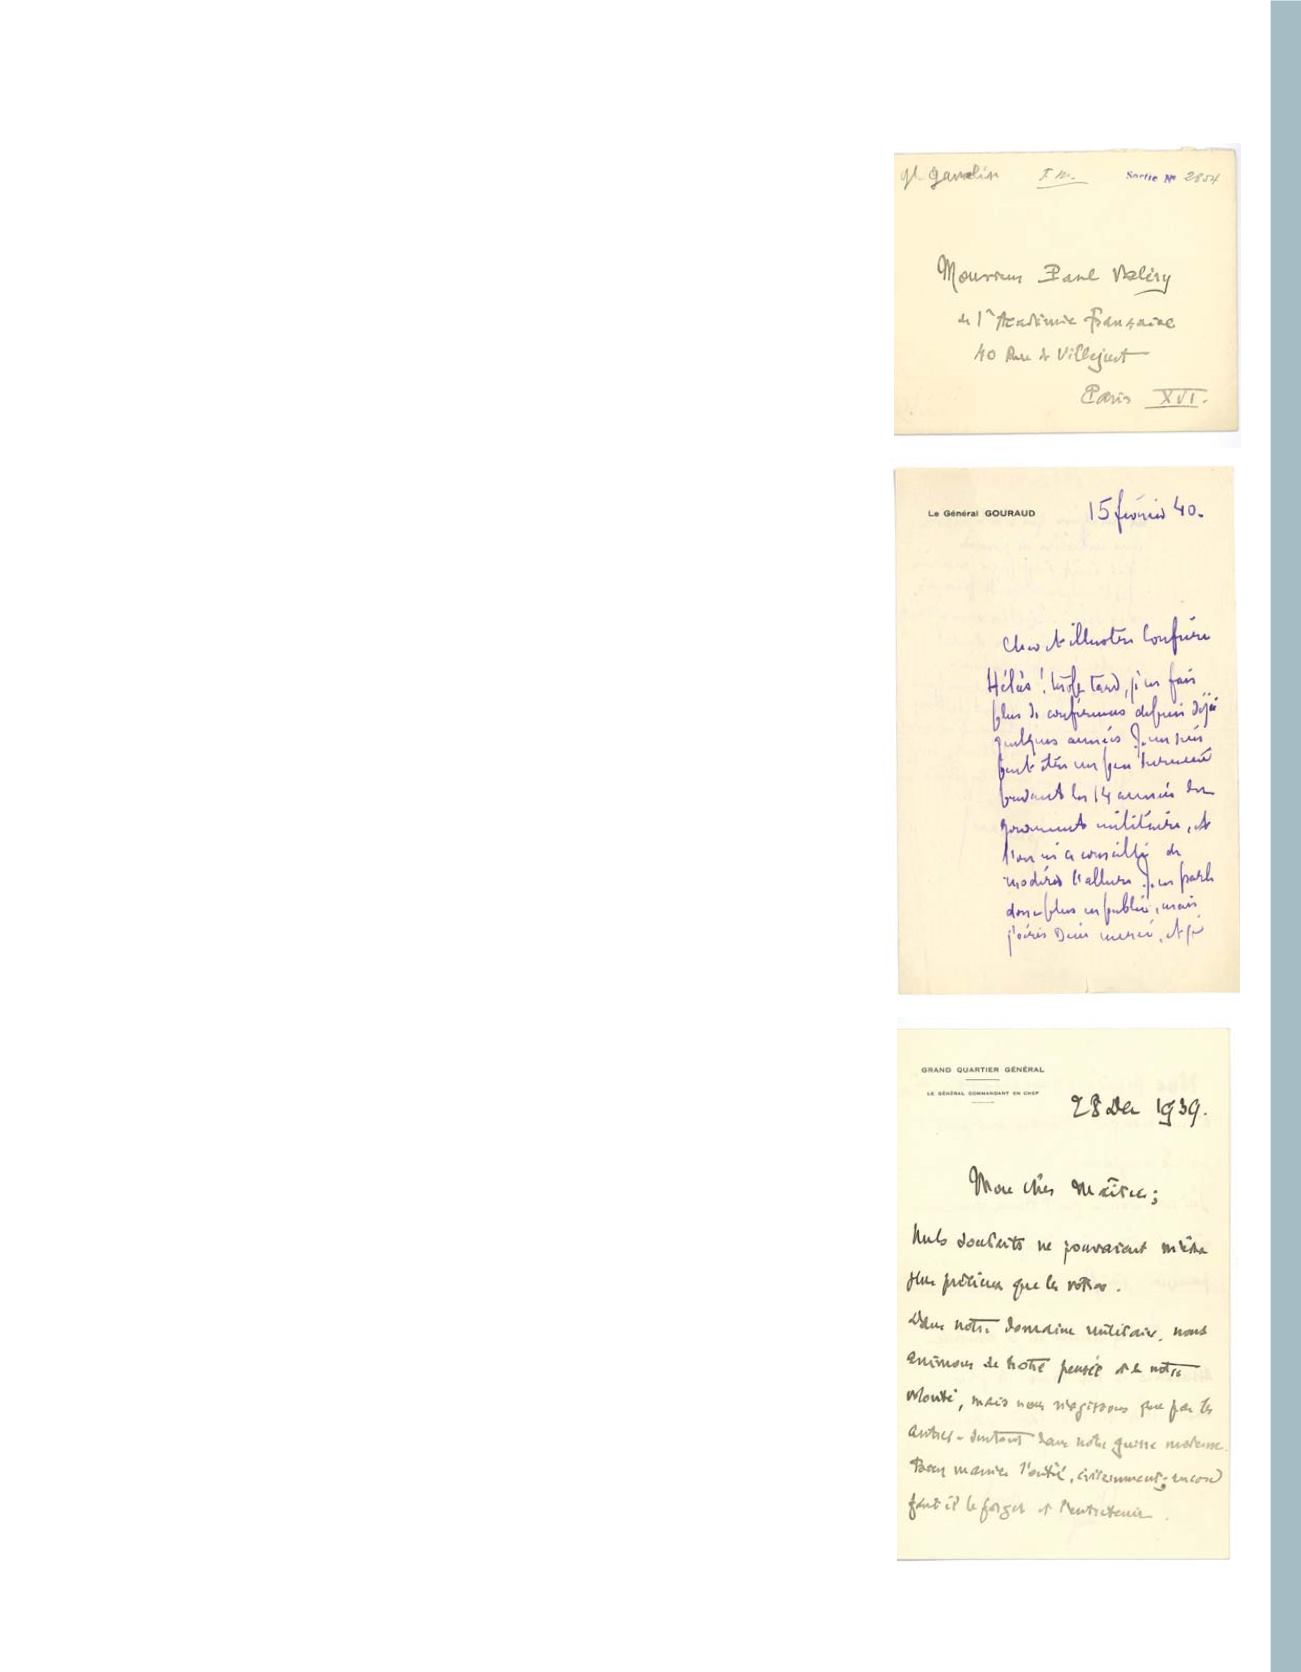 Gl. Gamelin T.M. Sortie Nº 2854
Monsieur Paul Valéry
de l'Académie française
40 Rue de Villejust
Paris XVI.
Le Général GOURAUD
15 février 40.
Cher et illustre Confrère
Hélas ! trop tard, je ne fais
plus de conférences depuis déjà
quelques années. Je me suis
peut être un peu surmené
pendant les 14 années de
gouvernement militaire, et
l'on m'a conseillé de
modérer l'allure. Je ne parle
donc plus en public, mais
GRAND QUARTIER GÉNÉRAL
LE GÉNÉRAL COMMANDANT EN CHEF
28 Dec 1939.
Mon cher Maître ;
Nuls souhaits ne pouvaient m'être
plus précieux que les vôtres.
Dans notre domaine militaire, nous
animons de notre pensée et de notre
volonté, mais nous n'agissons que par les
autres - surtout dans notre guerre moderne.
Bien manier l'outil, évidemment ; encore
faut il le forger et l'entretenir.